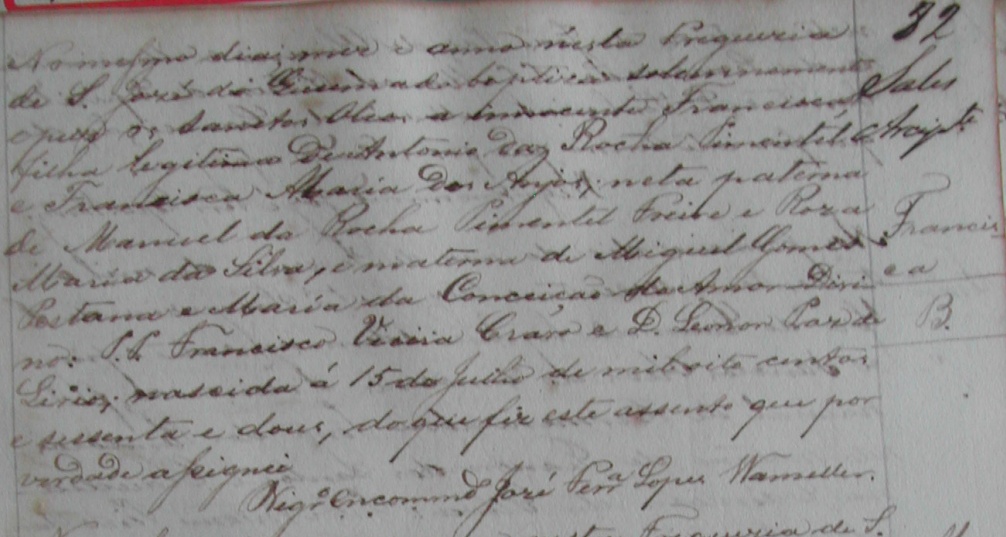 32
No mesmo dia, mez e anno nésta Freguezia
de S. José do baptizei solemnemente
e puz os Sanctos Oleos a innocente Francisca,
filha legitima de Antonio da Rocha Pimentel
e Francisca Maria dos Anjos, neta paterna
de Manuel da Rocha Pimentel Freire e Roza
Maria da Silva, e materna de Miguel Gomes
Pestana e Maria da Conceição do Amor Divi
no: P.P. Francisco Vieira e D. Leonor Paz de
Lirio, nascida á 15 de Julho de mil oito centos
e sessenta e dous, do que fiz este assento que por
verdade assignei
Vigr.º Encommd.º José Ferr.ª Lopes Wameller.
Sales
Francis
ca
B.
Freguezia de S.